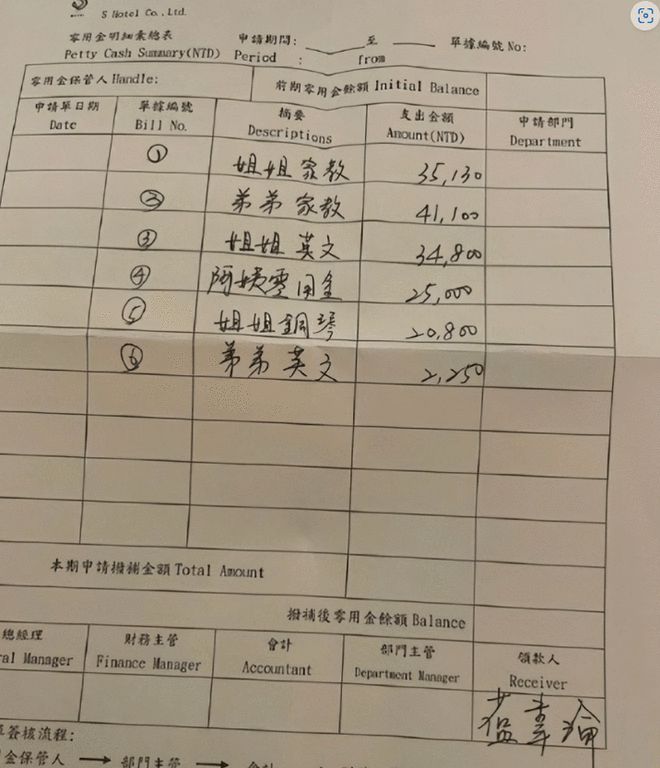 S Hotel Co., Ltd.
零用金明細彙總表 申請期間: 至 單據編號 No:
Petty Cash Summary(NTD) Period : from
零用金保管人 Handle: 前期零用金餘額 Initial Balance
申請單日期 單據編號 摘要 支出金額 申請部門
Date Bill No. Descriptions Amount(NTD) Department
① 姐姐家教 35,130
② 弟弟家教 41,100
③ 姐姐英文 34,800
④ 阿姨零用金 25,000
⑤ 姐姐鋼琴 20,800
⑥ 弟弟英文 2,250
本期申請撥補金額 Total Amount
撥補後零用金餘額 Balance
總經理 財務主管 會計 部門主管 領款人
ral Manager Finance Manager Accountant Department Manager Receiver
單簽核流程:
金保管人 → 部門主管 → 會計